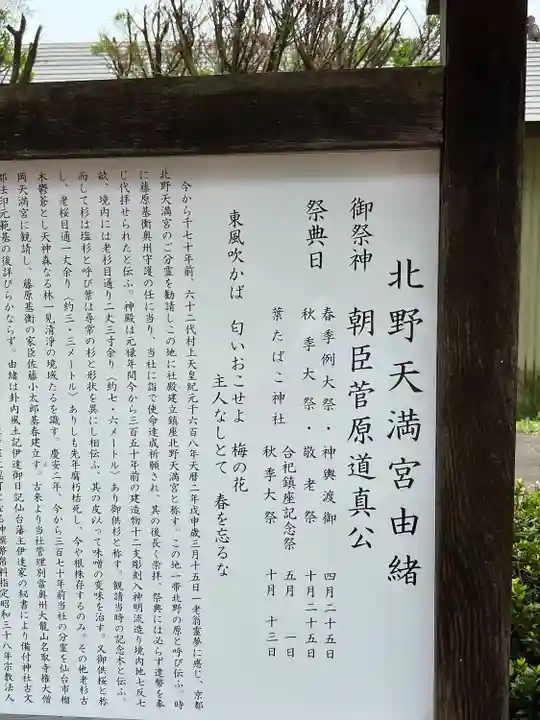 北野天満宮由緒
御祭神 朝臣菅原道真公
祭典日
春季例大祭・神輿渡御 四月二十五日
秋季大祭・敬老祭 十月二十五日
葉たばこ神社
合祀鎮座記念祭 五月 一日
秋季大祭 十月 十三日
東風吹かば 匂いおこせよ 梅の花
主人なしとて 春を忘るな
今から千七十年前、六十二代村上天皇紀元千六百八年天暦二年戊申歳三月十五日一老翁霊夢に感じ、京都
北野天満宮のご分霊を勧請しこの地に社殿建立鎮座北野天満宮と称す。この地一帯北野の原と呼び伝ふ。時
に藤原基衡奥州守護の任に当り、当社に詣で使命達成祈願され、其の後長く崇拝、祭典には必らず造幣を奉
じ代拝せられたと伝ふ。神殿は元禄年間今から三百五十年前の建造物十二支彫刻入神明流造り境内地七反七
畝、境内には老杉目通り二丈三寸余り（約七・六メートル）あり御供杉と称す。観請当時の記念木と伝ふ。
而して杉は塩杉と呼び葉は尋常の杉と形状を異にし相伝ふ、其の皮以って味噌の変味を治す。又御供桜と称
し、老桜目通一丈余り（約三・三メートル）ありしも先年腐朽枯死し、今や根株存するのみ。その他老杉古
木鬱蒼とし天神森なる林一見清浄の境域たるを識す。慶安二年、今から三百七十年前当社の分霊を仙台市榴
岡天満宮に観請し、藤原基衡の家臣佐藤小太郎基春建立す。古来より当社管理別當奥州大龍山名取寺権大僧
都法印元範基の後詳びらかならず。由緒は卦内風土記伊達御日記仙台藩主伊達家の秘書により備付神社古文